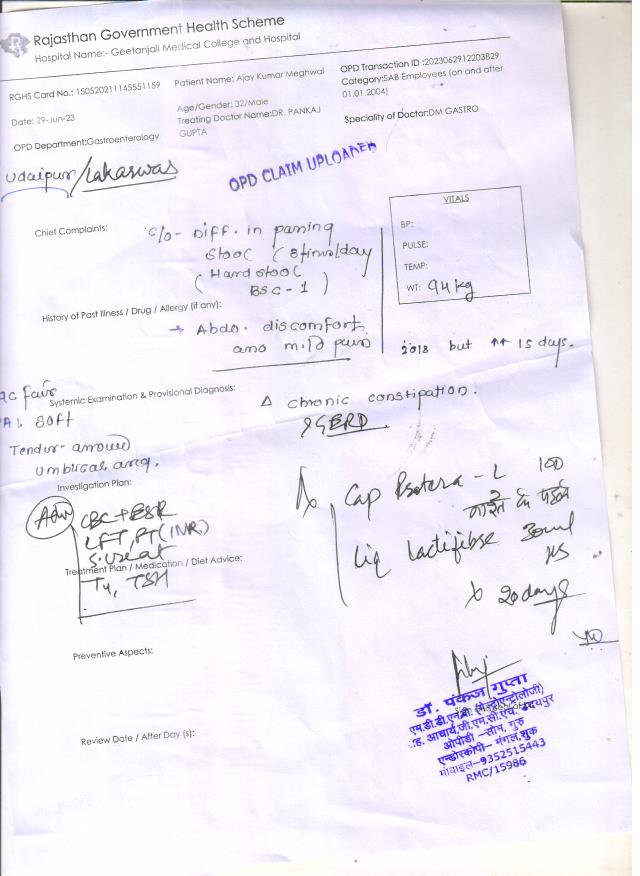 Rajasthan Government Health Scheme
Hospital Name:- Geetanjali Medical College and Hospital
RGHS Card No.: 150520211145551159
Patient Name: Ajay Kumar Meghwal
OPD Transaction ID :2023062912203829
Category:SAB Employees (on and after
01.01.2004)
Date: 29-Jun-23
Age/Gender: 32/Male
Treating Doctor Name:DR. PANKAJ
GUPTA
Speciality of Doctor:DM GASTRO
OPD Department:Gastroenterology
Udaipur/Lakarwas
OPD CLAIM UPLOADED
VITALS
BP:
PULSE:
TEMP:
WT: 94 kg
Chief Complaints:
c/o- Diff. in passing
stool (8 times/day
(Hard stool
BSC-1)
History of Past Illness / Drug / Allergy (if any):
→ Abdo. discomfort
and mild pain
2018 but ↑↑ 15 days.
GC fair
Systemic Examination & Provisional Diagnosis:
Δ chronic constipation.
? GERD
PA: soft
Tender- around
umbilical area.
Investigation Plan:
Adv
CBC + ESR
LFT, PT (INR)
S. creat
Treatment Plan / Medication / Diet Advice:
T4, TSH
Rx
Cap -L
Liq Lactifibse 30ml
HS
x 20 days
Preventive Aspects:
डॉ. पंकज गुप्ता
एम.डी.डी.एन.बी. (गेस्ट्रोएन्ट्रोलॉजी)
सह. आचार्य,जी.एम.सी.एच. उदयपुर
ओपीडी –सोम, गुरु
एन्डोस्कोपी– मंगल,शुक्र
मोबाइल–9352515443
RMC/15986
Review Date / After Day (s):